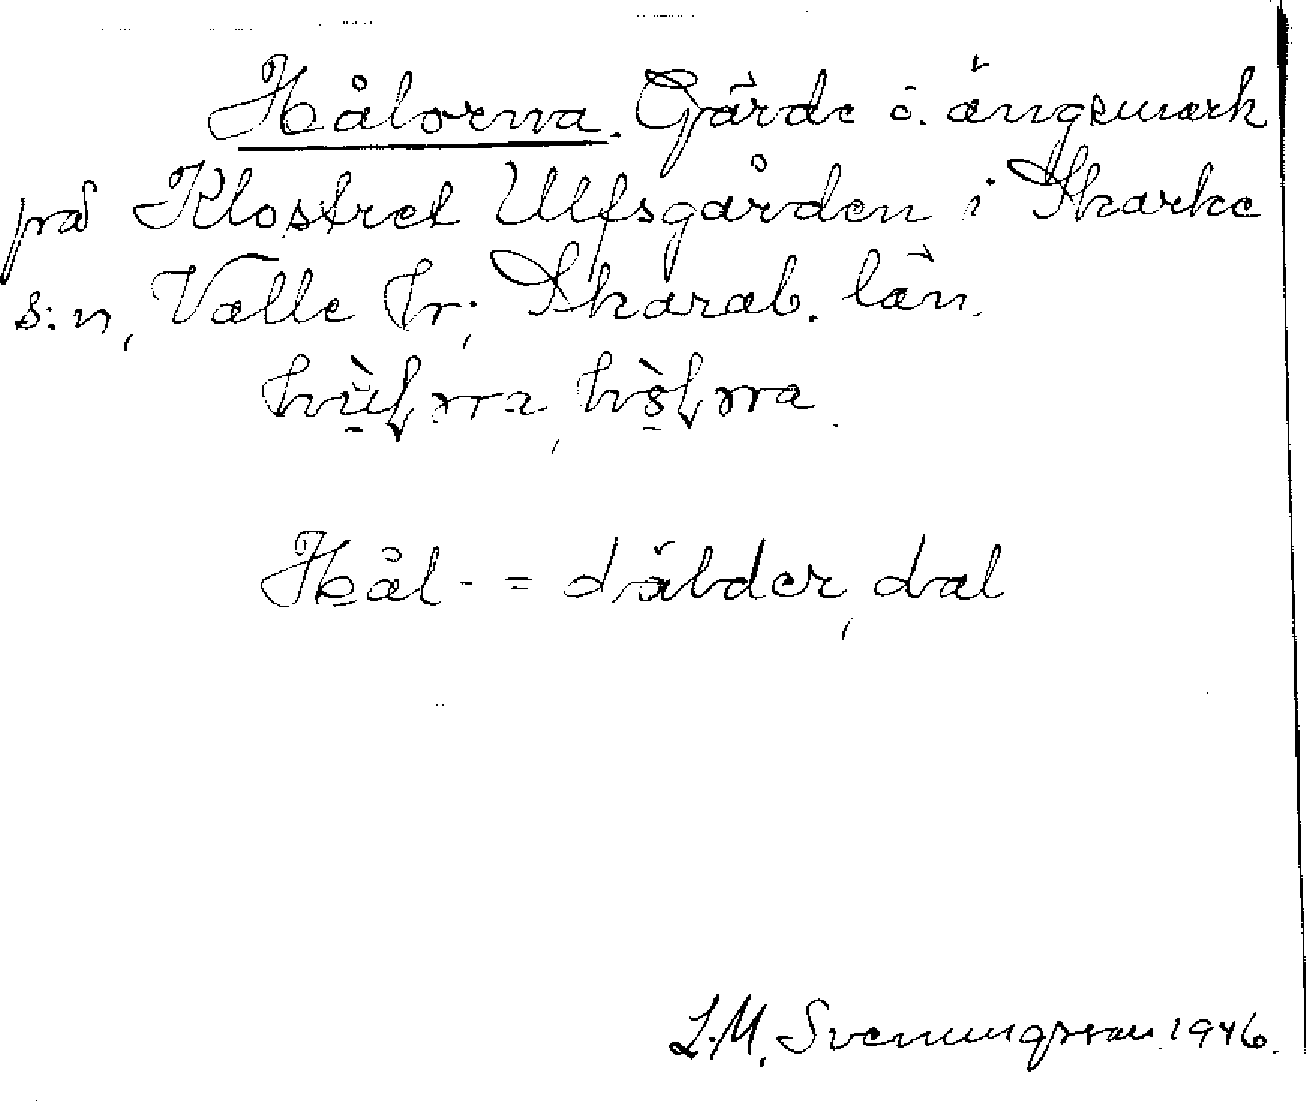 Hålorna. Gärde o. ängsmark
på Klostret Ulfsgården i Skarke
s:n, Valle hr; Skarab. län.
Hål- = dälder, dal
L.M. Svenungsson 1946.